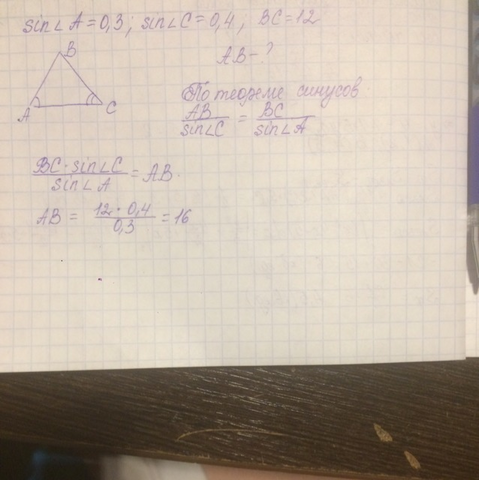 sin∠A = 0,3; sin∠C = 0,4; BC = 12
AB - ?
B
A
C
По теореме синусов
AB/sin∠C = BC/sin∠A
BC·sin∠C/sin∠A = AB
AB = 12·0,4/0,3 = 16